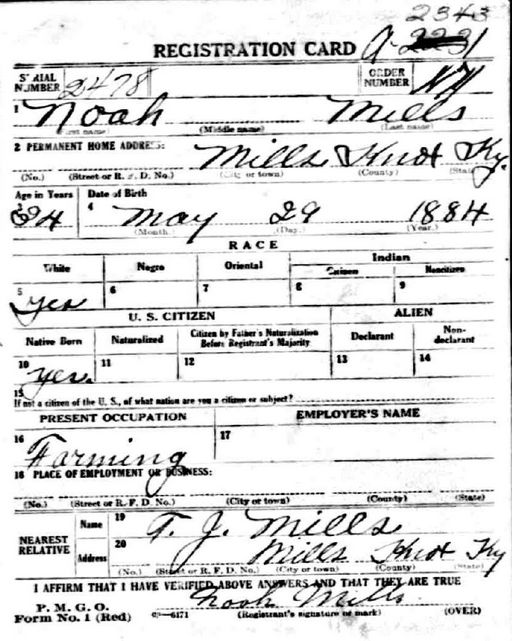 2343
REGISTRATION CARD A 2231
SERIAL NUMBER 2478 ORDER NUMBER
1 Noah Mills
(First name) (Middle name) (Last name)
2 PERMANENT HOME ADDRESS: Mills Knot Ky.
(No.) (Street or R. F. D. No.) (City or town) (County) (State)
Age in Years Date of Birth
3 34 4 May 29 1884
(Month.) (Day.) (Year.)
RACE
White Negro Oriental Indian
Citizen Noncitizen
5 Yes 6 7 8 9
U. S. CITIZEN ALIEN
Native Born Naturalized Citizen by Father's Naturalization Before Registrant's Majority Declarant Non-declarant
10 Yes. 11 12 13 14
15 If not a citizen of the U. S., of what nation are you a citizen or subject?
PRESENT OCCUPATION EMPLOYER'S NAME
16 Farming 17
18 PLACE OF EMPLOYMENT OR BUSINESS:
(No.) (Street or R. F. D. No.) (City or town) (County) (State)
NEAREST RELATIVE Name 19 T. J. Mills
Address 20 Mills Knot Ky
(No.) (Street or R. F. D. No.) (City or town) (County) (State)
I AFFIRM THAT I HAVE VERIFIED ABOVE ANSWERS AND THAT THEY ARE TRUE
P. M. G. O.
Form No. 1 (Red) 03—6171 Noah Mills (Registrant's signature or mark) (OVER)